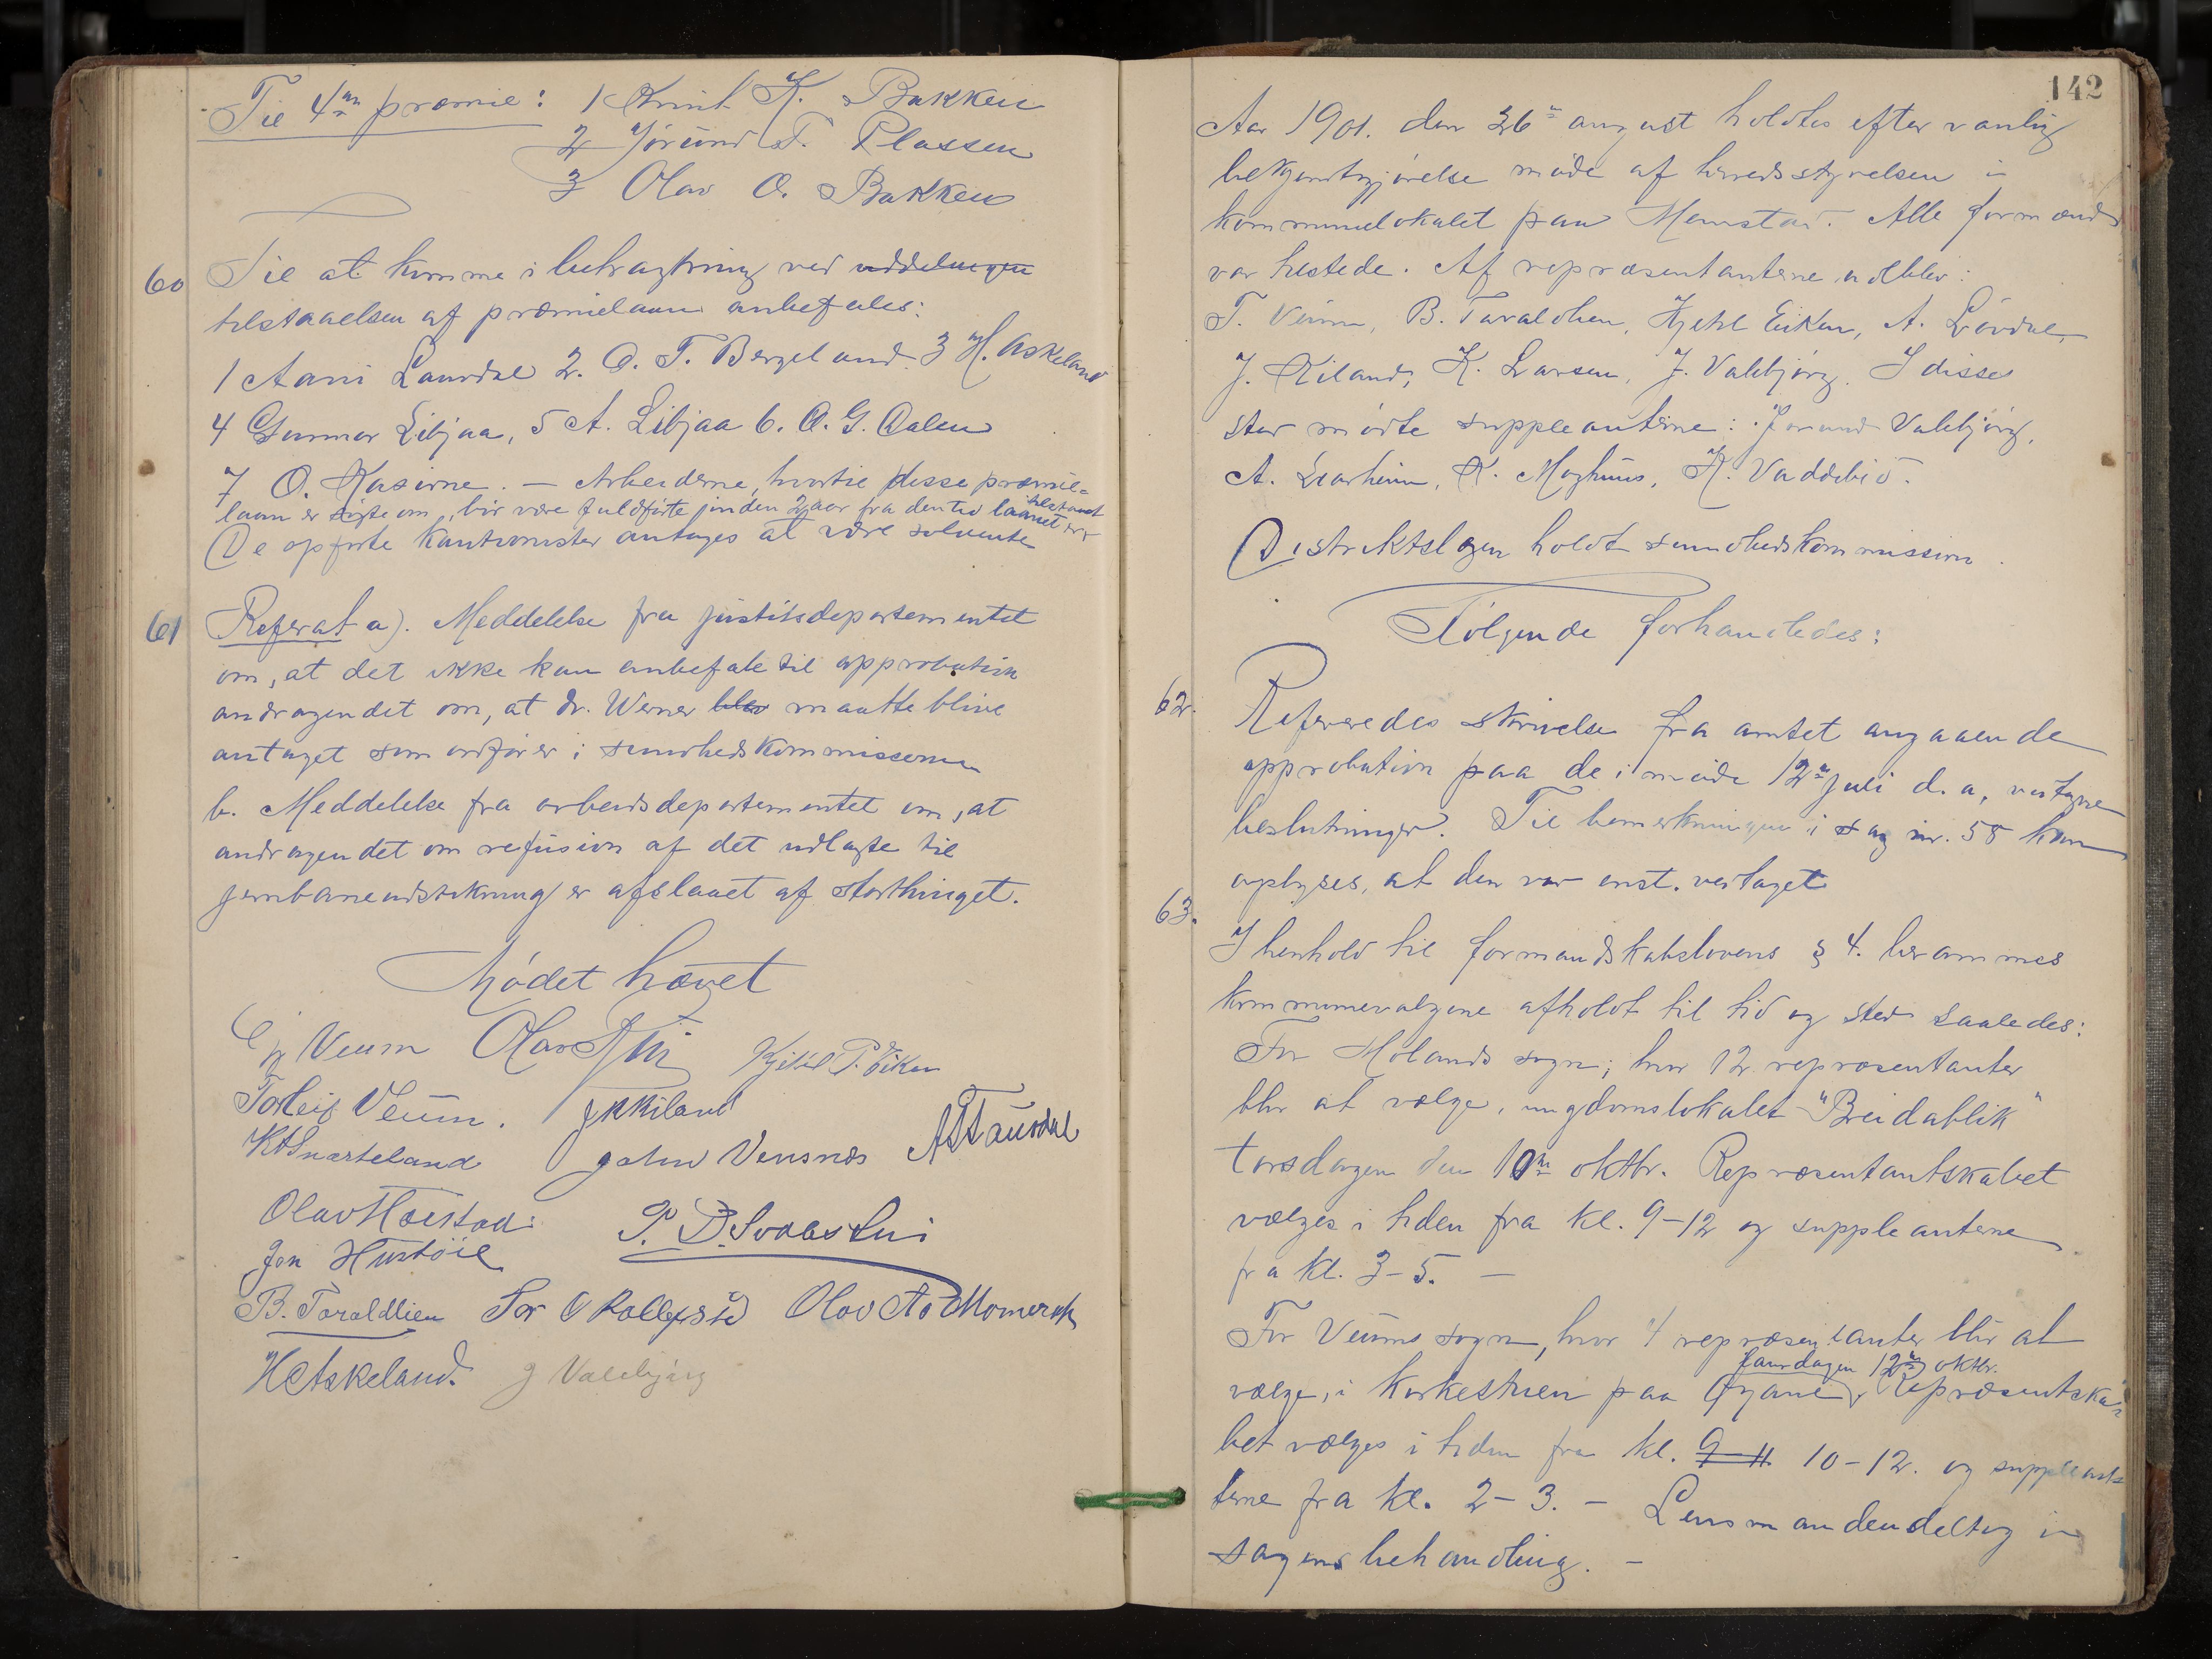 Til 4de præmie: 1 Knut K. Bakken
2 Jørund T. Plassen
3 Olav O. Bakken
60 Til at komme i betragtning ved uddelingen
tilstaaelsen af præmielaan anbefales:
1 Aani Laurdal 2. O. T. Bergeland 3 H. Askeland
4 Gunnar Libjaa, 5 A. Libjaa 6. O. G. Dalen
7 O. Kasine. – Arbeiderne, hvortil disse præmie-
laan er søgte om, bør være fuldførte inden 2 aar fra den tid laanet er tilstaaet
De opførte kautionister antages at være solvente
61 Referat a). Meddelelse fra justitsdepartementet
om, at det ikke kan anbefale til approbation
andragendet om, at dr. Werner blev maatte blive
antaget som ordfører i sundhedskommissionen
b. Meddelelse fra arbeidsdepartementet om, at
andragendet om refusion af det udlagte til
jernbaneundersøkning er afslaaet af storthinget.
Mødet hævet
Veum Olav Kjetil P. Eiken
Torleif Veum. J K Kiland
K A Snarteland John Vensnes A T Taurdal
Olav Haustad P. D. Svalastui
Jon Hustöil
B. Taraldlien Tor O Kolleysid Olav Aa Momrak
H Askeland. J Valebjørg
142
Aar 1901. den 26de august holdtes efter vanlig
bekjendtgjørelse møde af herredsstyrelsen i
kommunelokalet paa Momstad. Alle formænd
var tilstede. Af repræsentanterne udblev:
T. Veum, B. Taraldlien, Kjetil Eiken, A. Løvdal,
J. Kiland, K. Larsen, J. Valebjørg. I disses
sted mødte suppleanterne: Jørund Valebjørg,
A. Liarheim, K. Moghus, K. Vaddebiø.
Distriktslægen holdt sundhedskommission.
Følgende forhandledes:
62. Refereredes skrivelse fra amtet angaaende
approbation paa de i møde 12te juli d. a. vedtagne
beslutninger. Til bemerkningen i sag nr. 58 kan
oplyses, at den var enst. vedtaget
63. I henhold til formandskabslovens § 4. berammes
kommunevalgene afholdt til tid og sted saaledes:
For Molands sogn; hvor 12 repræsentanter
blir at vælge, ungdomslokalet "Breidablik"
torsdagen den 10de oktbr. Repræsentantskabet
vælges i tiden fra kl. 9–12 og suppleanterne
fra kl. 3–5. –
For Veums sogn, hvor 4 repræsentanter blir at
vælge, i kirkestuen paa Øyane laurdagen 12te oktbr. Repræsentska-
bet vælges i tiden fra kl. 9–11 10–12. og supplean-
terne fra kl. 2–3. – Lensmanden deltog i
sagens behandling. –